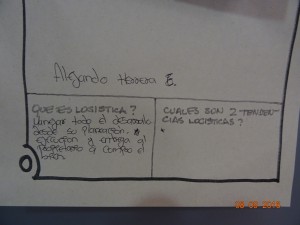 Alejandro Herrera E.
QUE ES LOGISTICA?
Manejar todo el desarrollo
desde su planeacion,
ejecucion y entrega al
propietario o compro el
bien.
CUALES SON 2 TENDEN-
CIAS LOGISTICAS?